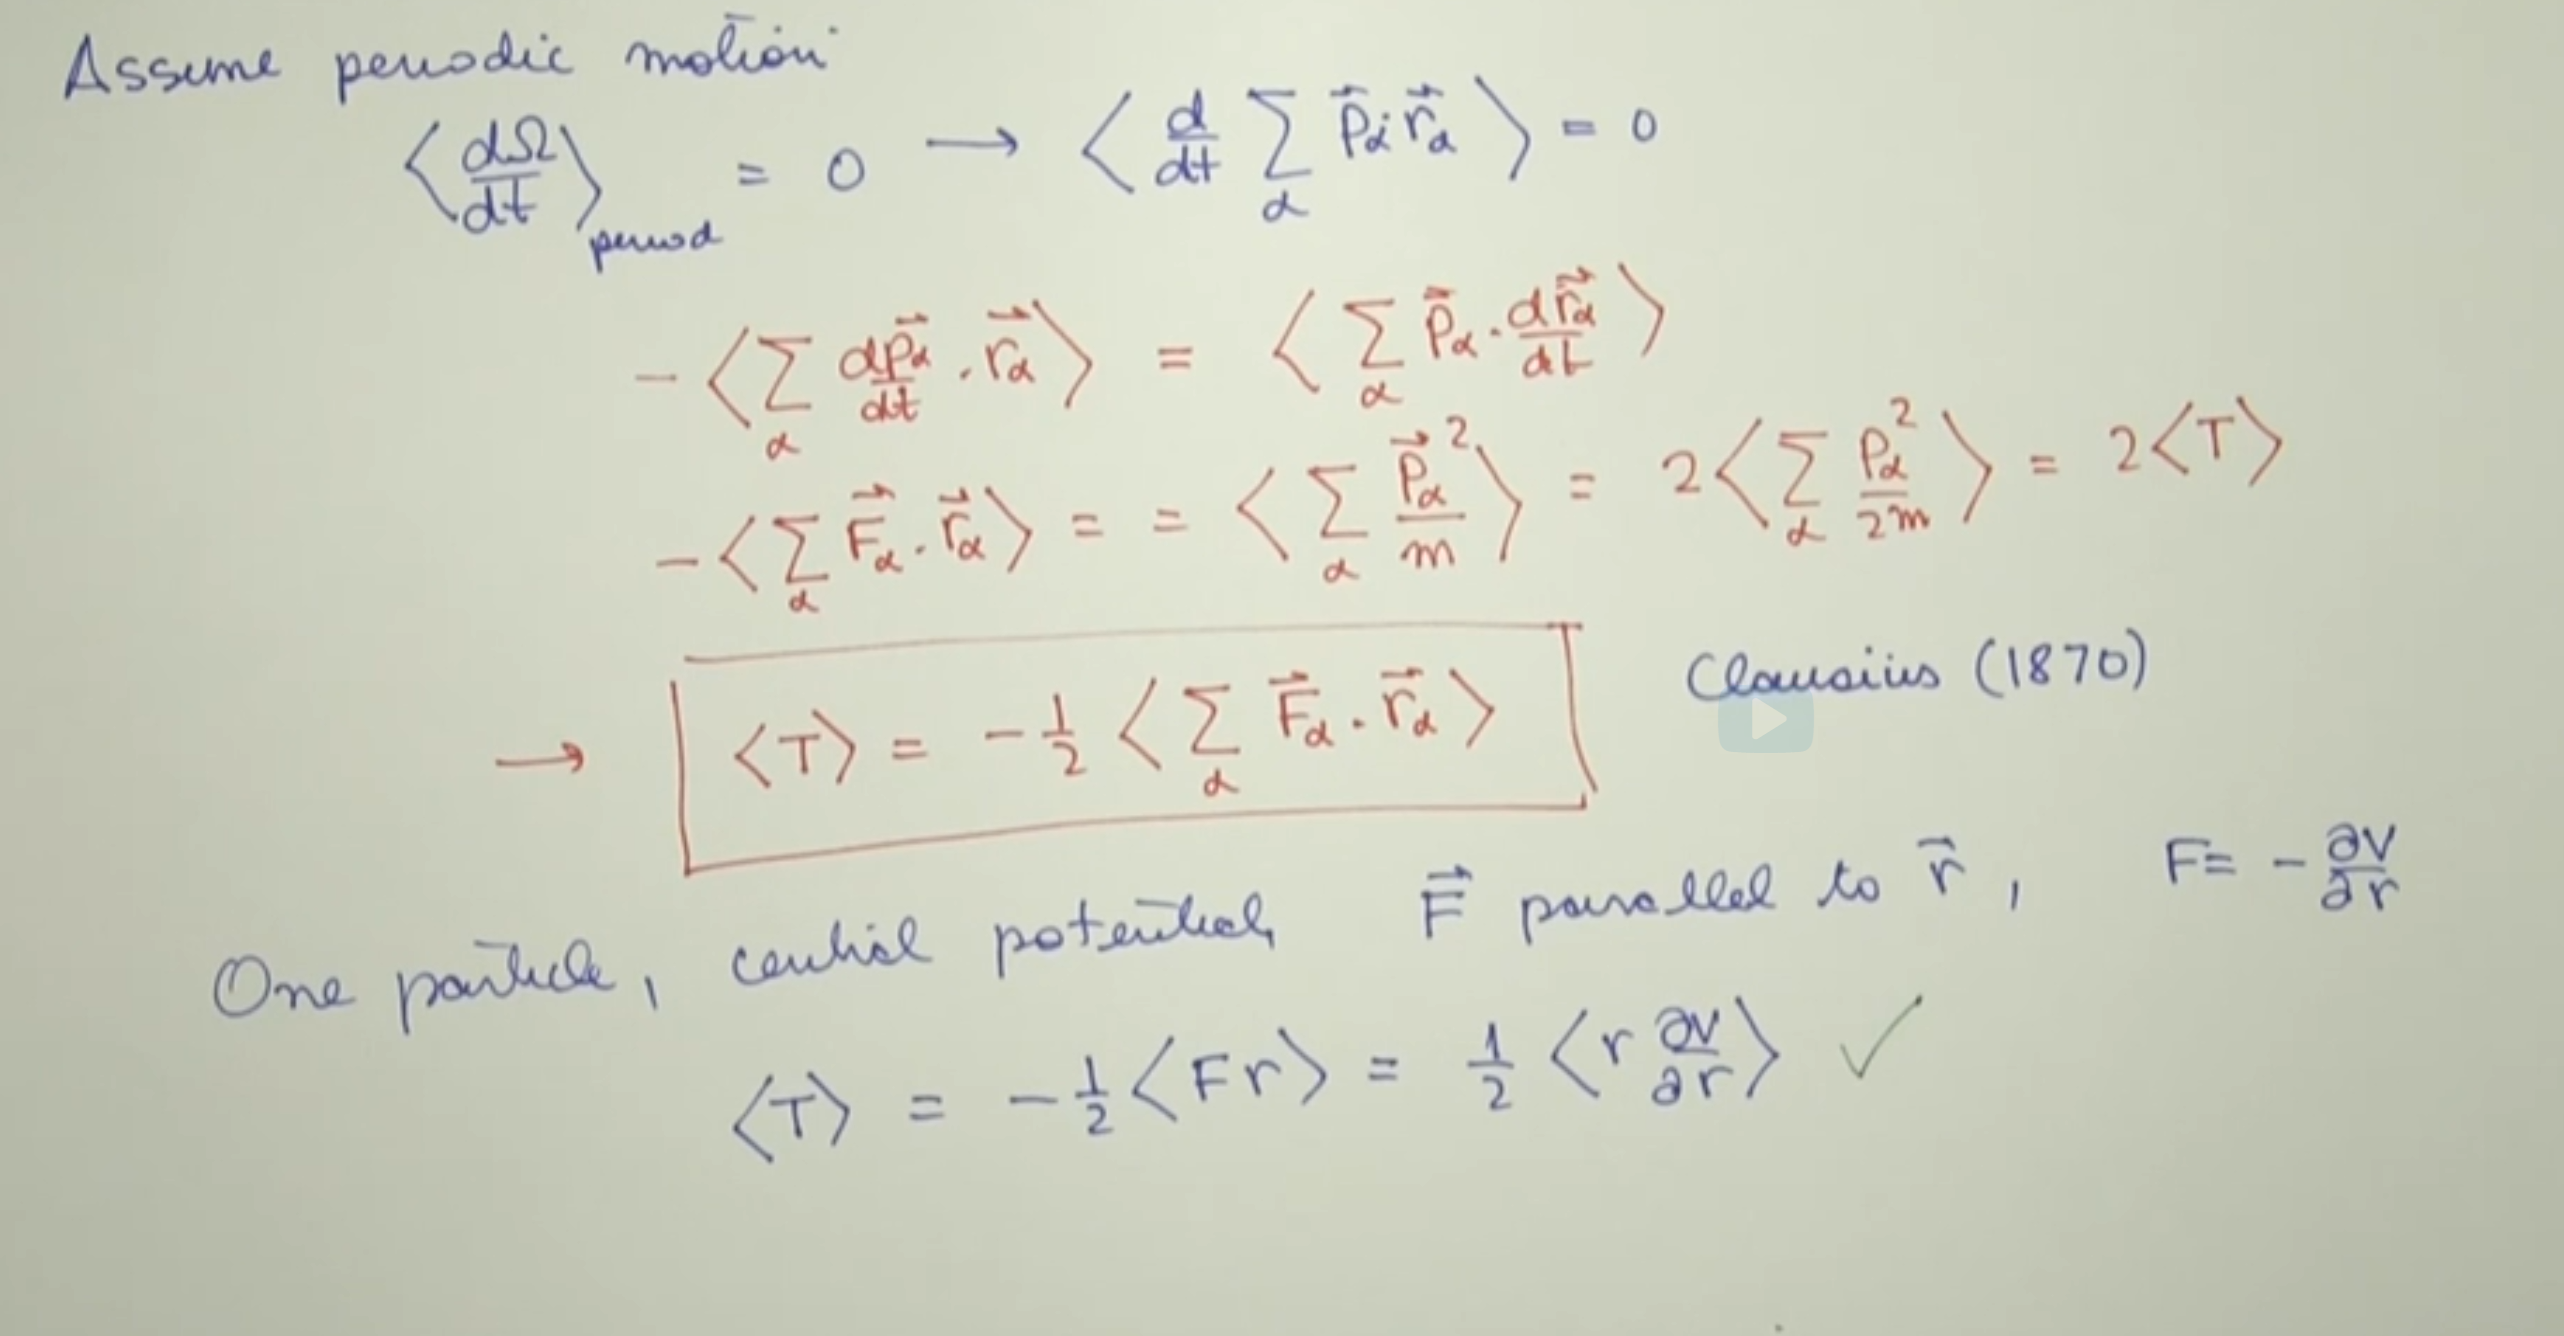 Assume periodic motion
⟨dΩ/dt⟩_period = 0 → ⟨d/dt Σ_α p⃗_α · r⃗_α⟩ = 0
-⟨Σ_α dp⃗_α/dt · r⃗_α⟩ = ⟨Σ_α p⃗_α · dr⃗_α/dt⟩
-⟨Σ_α F⃗_α · r⃗_α⟩ = = ⟨Σ_α p⃗_α²/m⟩ = 2⟨Σ_α p_α²/2m⟩ = 2⟨T⟩
→ ⟨T⟩ = -1/2 ⟨Σ_α F⃗_α · r⃗_α⟩ Clausius (1870)
One particle, central potential, F⃗ parallel to r⃗, F = - ∂V/∂r
⟨T⟩ = -1/2 ⟨Fr⟩ = 1/2 ⟨r ∂V/∂r⟩ ✓